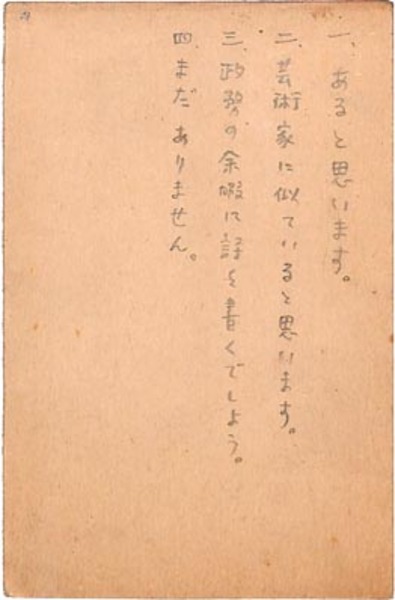 一、あると思います。
二、芸術家に似ていると思います。
三、政務の余暇に詩を書くでしょう。
四、まだありません。